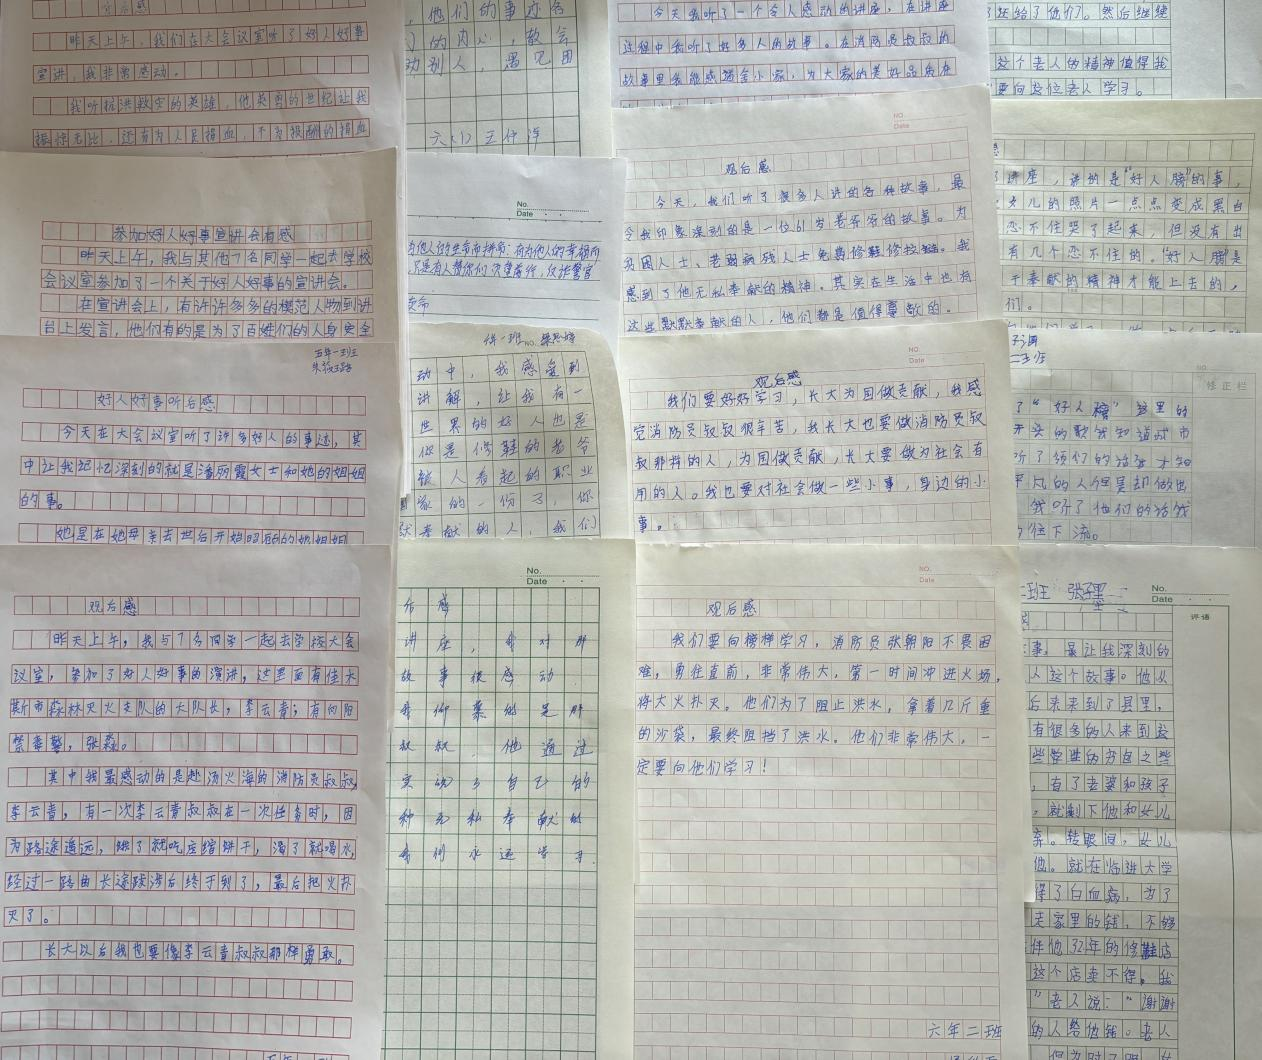 昨天上午，我们在大会议室听了好人好事
宣讲，我非常感动。
我听抗洪救灾的英雄，他英勇的世纪让我
振惊无比，还有为人民捐血，不为报酬的捐血
参加好人好事宣讲会有感
昨天上午，我与其他7名同学一起去学校
会议室参加了一个关于好人好事的宣讲会。
在宣讲会上，有许许多多的模范人物到讲
台上发言，他们有的是为了百姓们的人身安全
五年一班
好人好事听后感
今天在大会议室听了许多好人的事迹，其
中让我记忆深刻的就是潘丽霞女士和她的姐姐
的事。
她是在她母亲去世后开始照顾的她姐姐
观后感
昨天上午，我与7名同学一起去学校大会
议室，参加了好人好事的演讲，这里面有佳木
斯市森林灭火支队的大队长，李云青；有向阳
禁毒警，张淼。
其中我最感动的是赴汤火海的消防员叔叔，
李云青，有一次李云青叔叔在一次任务时，因
为路途遥远，饿了就吃压缩饼干，渴了就喝水，
经过一路曲长途跋涉后终于到了，最后把火扑
灭了。
长大以后我也要像李云青叔叔那样勇敢。
，他们的事迹名
的内心，教会
动别人，遇见困
No.
Date
为他人的生命而拼命；有为他人的幸福而
No.
动中，我感受到
讲解，让我有一
世界的好人也是
你是修鞋的老爷
被人看起的职业
家的一份子，你
奉献的人，我们
No.
Date
后感
讲座，我对
故事很感动
我仰慕的是
叔叔，他通过
实现了自己的
种无私奉献的
我们永远学习.
今天我听了一个令人感动的讲座，在讲座
过程中我听了好多人的故事。在消防员叔叔的
故事里我能感
NO.
Date
观后感
今天，我们听了很多人讲的各种故事，最
令我印象深刻的是一位61岁老爷爷的故事。为
贫困人士、老弱病残人士免费修鞋修拉链。我
感到了他无私奉献的精神。其实在生活中也有
这些默默奉献的人，他们都是值得尊敬的。
NO.
Date
观后感
我们要好好学习，长大为国做贡献，我感
觉消防员叔叔很辛苦，我长大也要做消防员叔
叔那样的人，为国做贡献，长大要做为社会有
用的人。我也要对社会做一些小事，身边的小
事。
NO.
Date
观后感
我们要向榜样学习，消防员张朝阳不畏困
难，勇往直前，非常伟大，第一时间冲进火场，
将大火扑灭。他们为了阻止洪水，拿着几斤重
的沙袋，最终阻挡了洪水。他们非常伟大，一
定要向他们学习！
六年二班
还给了他们。然后继续
这个老人的精神值得我
要向这位老人学习。
讲座，讲的是“好人榜”的事，
女儿的照片一点点变成黑白
忍不住哭了起来，但没有出
有几个忍不住的。“好人榜是
于奉献的精神才能上去的，
们。
NO.
修正栏
了“好人榜”这里的
开头的歌我知道城市
听了领们的话我才知
平凡的人但是却做出
我听了他们的话我
往下流。
二班 张子墨
No.
Date
评语
事。最让我深刻的
人这个故事。他从
后来来到了县里，
有很多的人来到这
些学生的书包之些
，有了老婆和孩子
，就剩下他和女儿
弃。转眼间，女儿
他。就在临进大学
得了白血病，为了
走家里的钱，不够
件他32年的修鞋店
这个店卖不得，我
”老人说：“谢谢
的人给他钱。老人